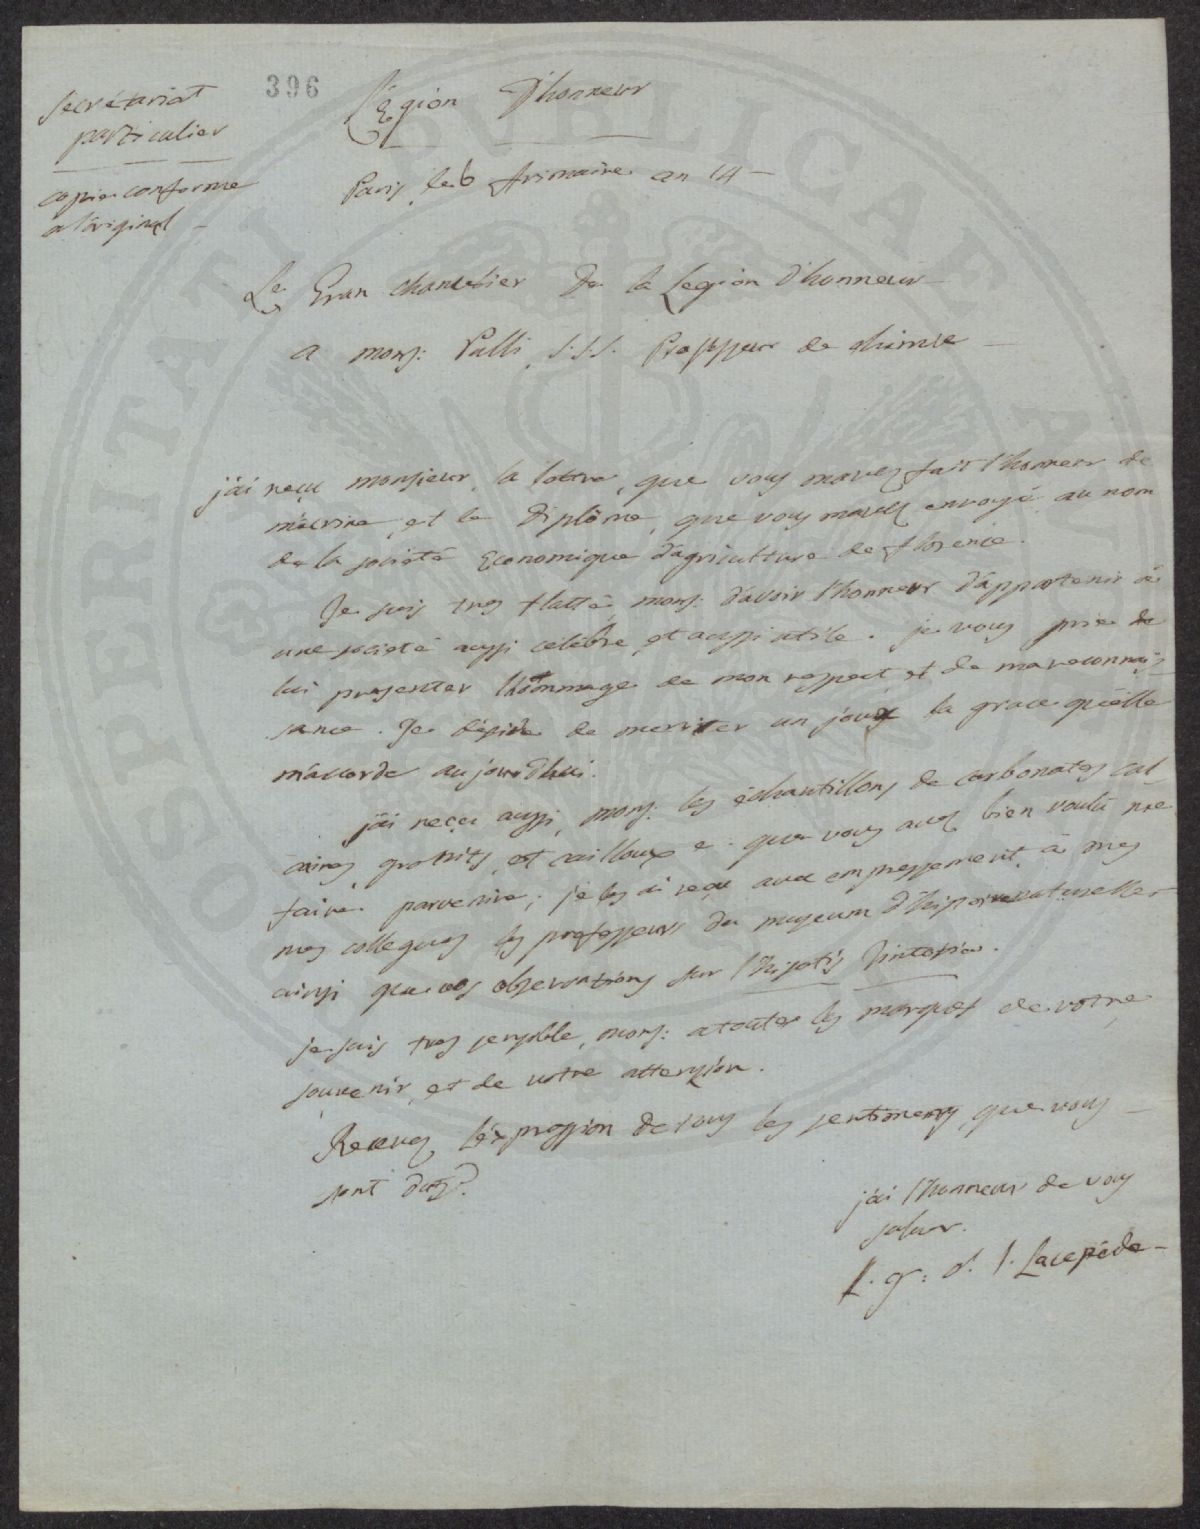 396
secrétariat
particulier
copie conforme
a l'original
Légion D'honneur
Paris le 6 frimaire an 14
Le Gran chancelier De la Legion D'honneur
a mons: Palli S.S.S. Professeur de chimie
j'ai reçu monsieur, la lettre, que vous m'avez fait l'honneur de
m'ecrire, et le Diplôme, que vous m'avez envoyé au nom
de la societé Economique d'agriculture de florence.
Je suis tres flatté, mons: d'avoir l'honneur d'appartenir à
une societé aussi célébre, et aussi utile. je vous prie de
lui presenter l'hommage de mon respect et de ma reconnais
sance. Je désire de meriter un jour la grace qu'elle
m'accorde aujourdhui.
j'ai reçu aussi, mons: les échantillons de carbonates cal
caires, et cailloux que vous avez bien voulu me
faire parvenire; je les ai reçu avec empressement à mes
mes collegues les professeurs du museum d'histoire naturelle
ainsi que vos observations sur l'
je suis tres sensible, mons: a toutes les marques de votre
souvenir, et de votre attension.
Recevez l'expression de tous les sentimens, que vous
sont dus.
j'ai l'honneur de vous
saluer.
L. g: d. l. Lacepéde
PROSPERITATI PVBLICAE AVGENDAE